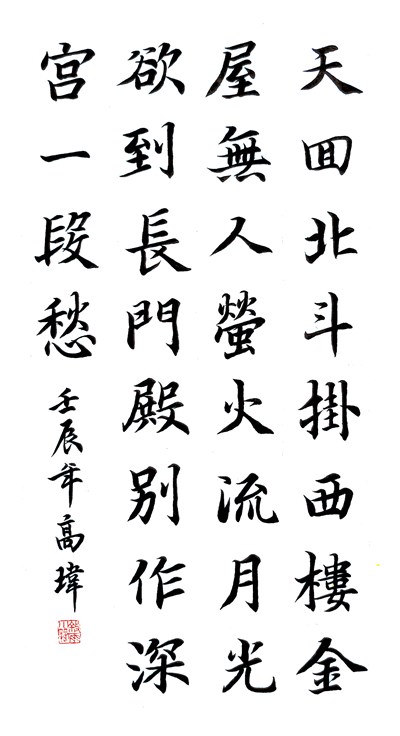 天回北斗掛西樓金
屋無人螢火流月光
欲到長門殿別作深
宮一段愁
壬辰年高瑋